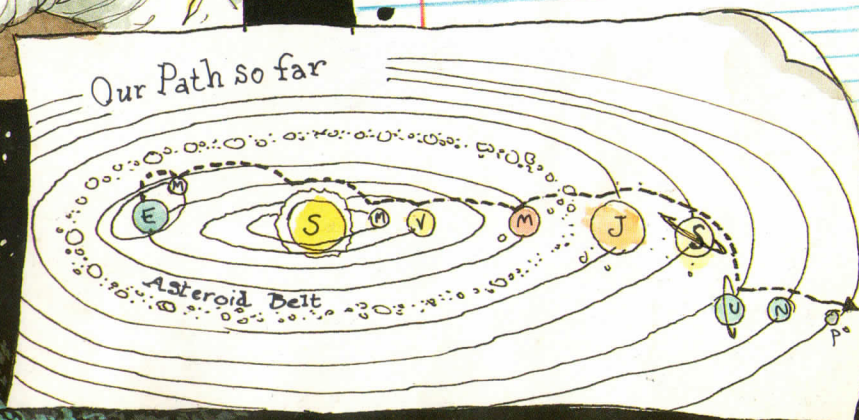 Our Path so far
M
E
S
M
V
M
J
S
U
N
P
Asteroid Belt